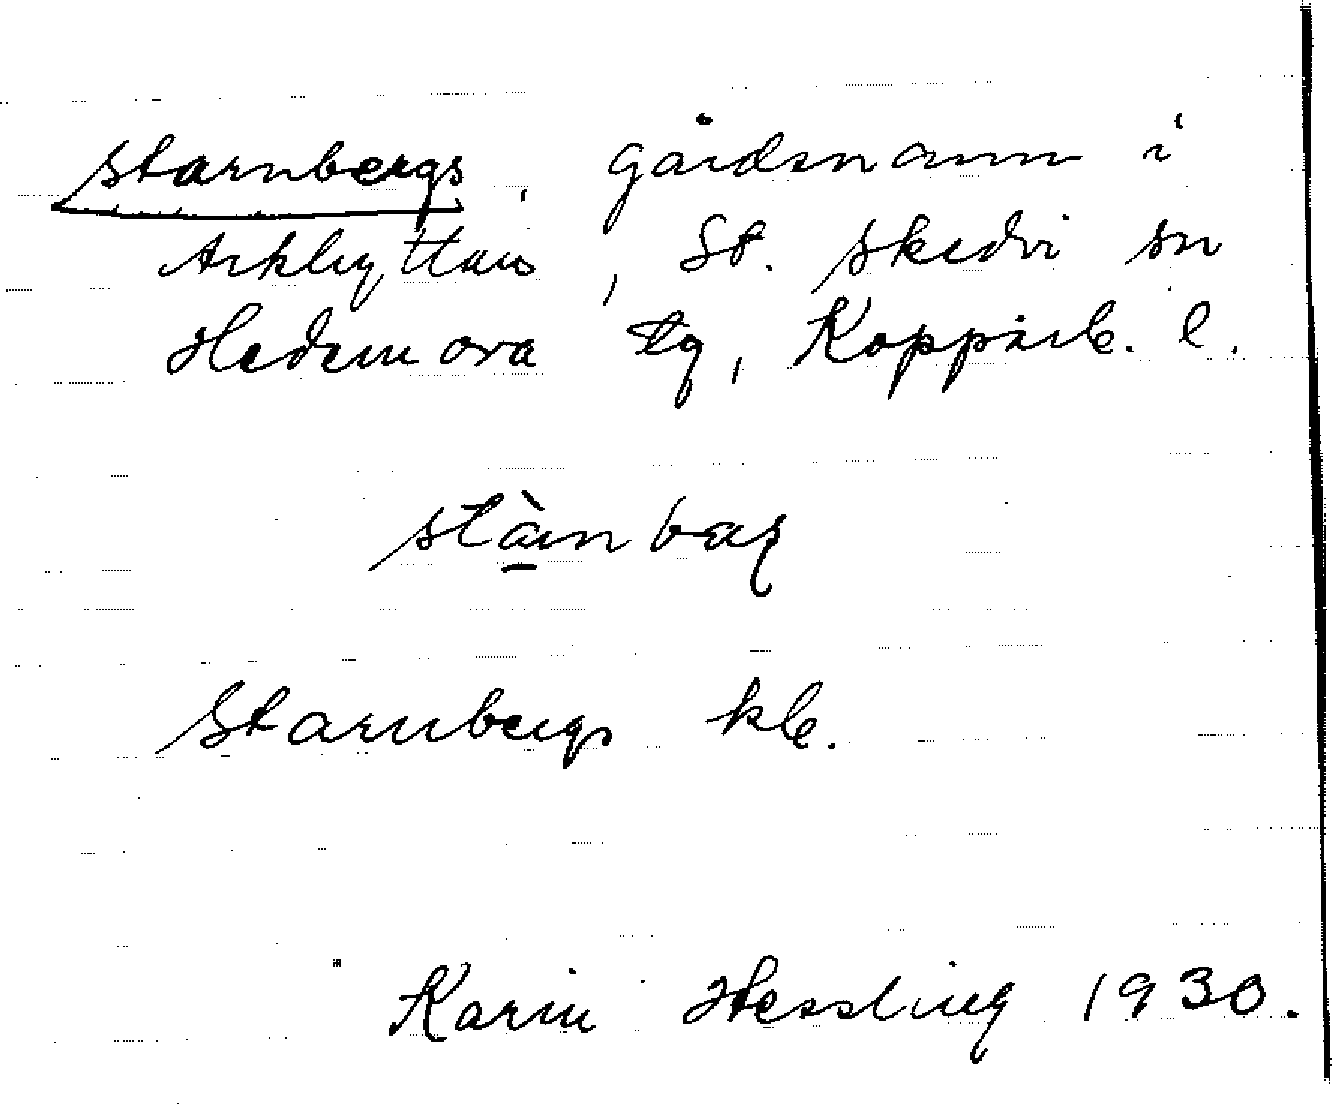 Starnbergs, gårdsnamn i
Arkhyttan, St. Skedvi sn
Hedemora tg, Kopparb. l.
stàrnbaʂ
Starnbergs kb.
Karin Hessling 1930.